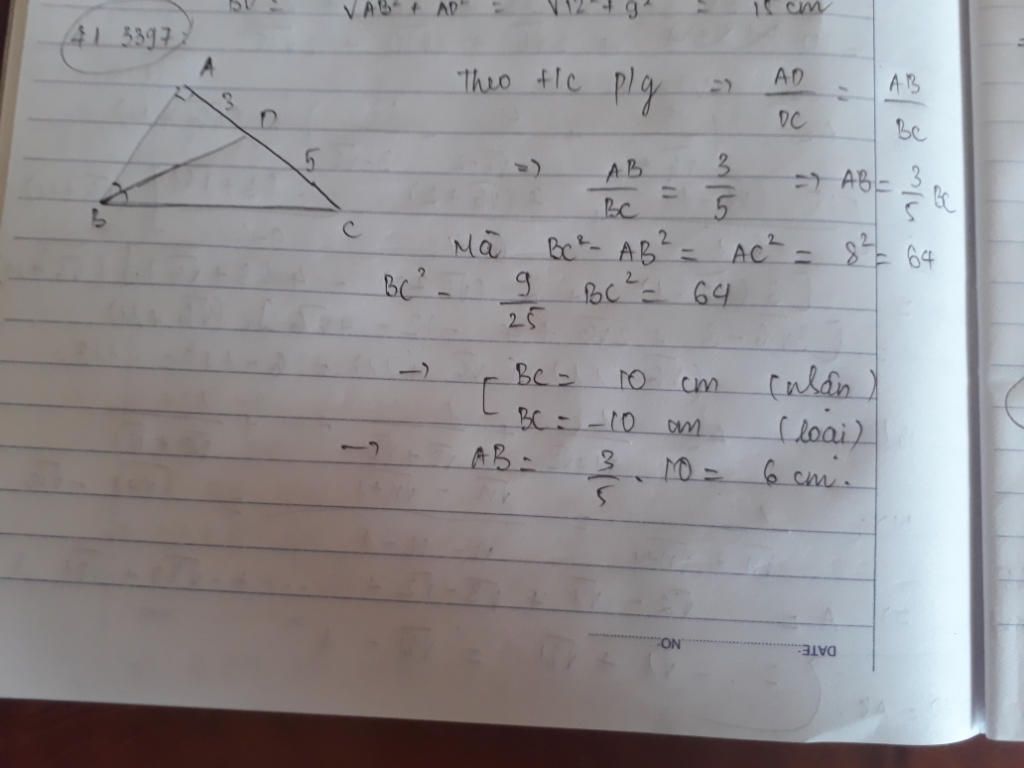 BD = √AB² + AD² = √12² + 9² = 15 cm
71 3397:
A
3
D
5
B
C
Theo t/c p/g => AD/DC = AB/BC
=> AB/BC = 3/5 => AB = 3/5 BC
Mà BC² - AB² = AC² = 8² = 64
BC² - 9/25 BC² = 64
→ [ BC = 10 cm (nhận)
BC = -10 cm (loại)
→ AB = 3/5 . 10 = 6 cm.
DATE: NO: